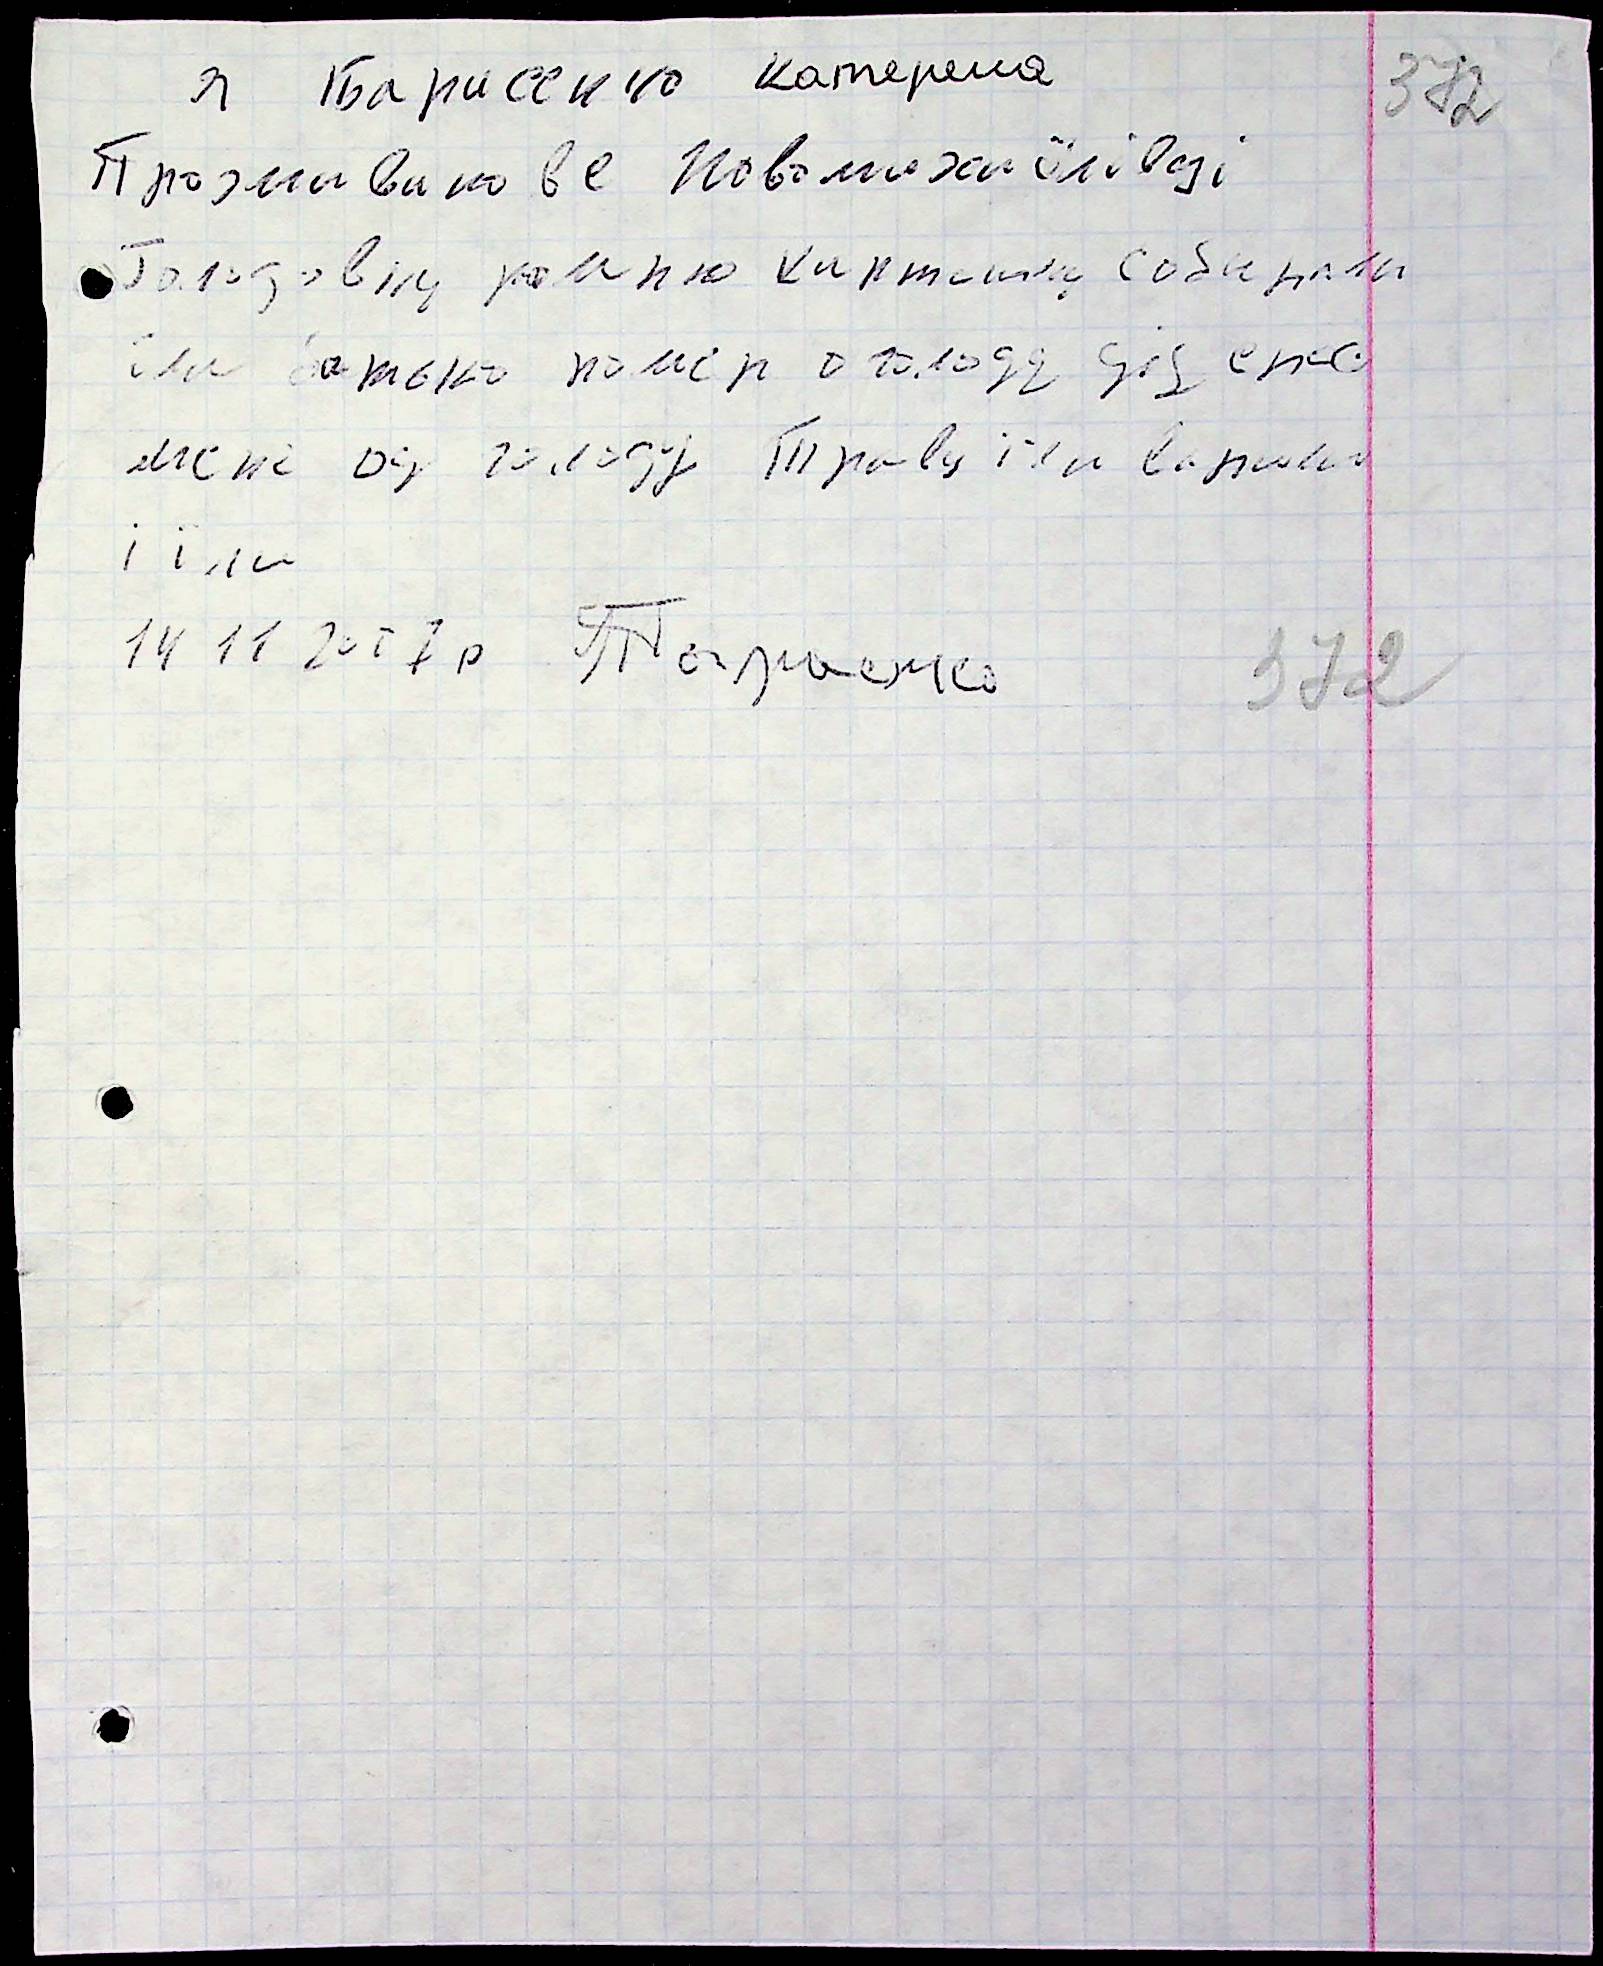 я Барисенко Катерена 372
Проживаю ве Новомихайлівці
Голодовку помню картошку собирали
їли батько помер о голоду дід
од голоду Траву їли варили
і їли
14 11 2007р Борисенко 372